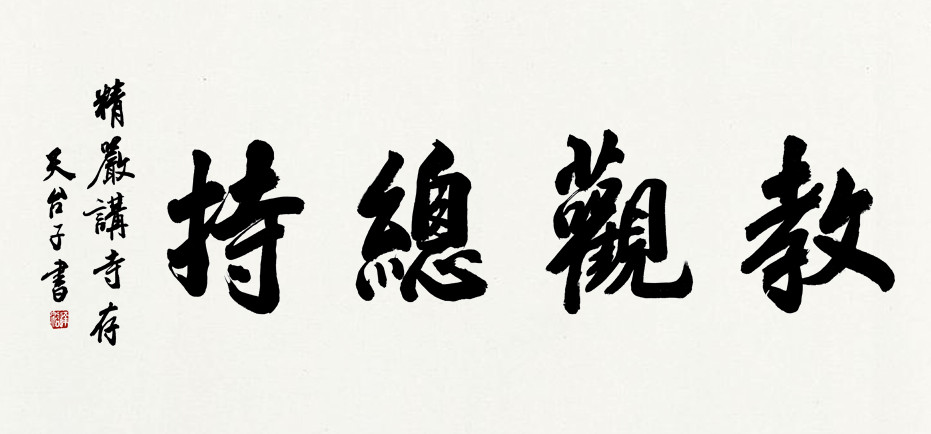 教觀總持
精嚴講寺存
天台子書